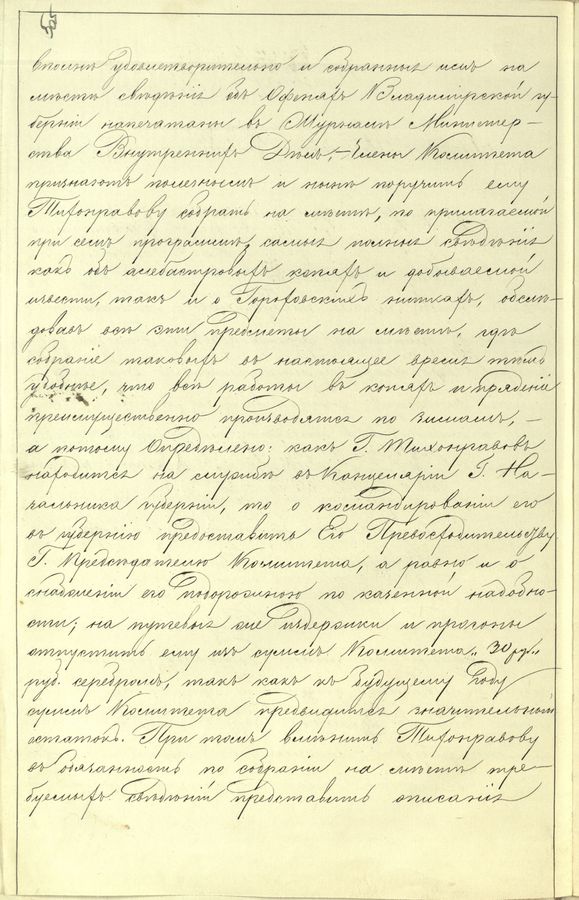 вполнѣ удовлетворительно и собранныя имъ на
мѣстѣ свѣдѣнія объ Офеняхъ Владимірской гу-
берніи напечатаны въ Журналѣ Министер-
ства Внутреннихъ Дѣлъ, – Члены Комитета
признаютъ полезнымъ и нынѣ поручить ему
Тихонравову собрать на мѣстѣ, по прилагаемой
при семъ программѣ, самыя полныя свѣдѣнія
какъ объ алебастровыхъ копяхъ и добываемой
извести, такъ и о Гороховскихъ ниткахъ, обслѣ-
довавъ всѣ эти предметы на мѣстѣ, гдѣ
собраніе таковыхъ въ настоящее время тѣмъ
удобнѣе, что всѣ работы въ копяхъ и пряденіе
преимущественно производятся по зимамъ, –
а потому Опредѣлено: какъ Г. Тихонравовъ
находится на службѣ въ Канцеляріи Г. На-
чальника губерніи, то о командированіи его
въ губернію предоставить Его Превосходительству
Г. Предсѣдателю Комитета, а равно и о
снабженіи его подорожною по казенной надобно-
сти; на путевыя же издержки и прогоны
отпустить ему изъ суммъ Комитета „30 ру„
руб. серебромъ, такъ какъ къ будущему году
суммъ Комитета предвидится значительный
остатокъ. При томъ вмѣнить Тихонравову
въ обязанность по собраніи на мѣстѣ тре-
буемыхъ свѣдѣній представить описанія